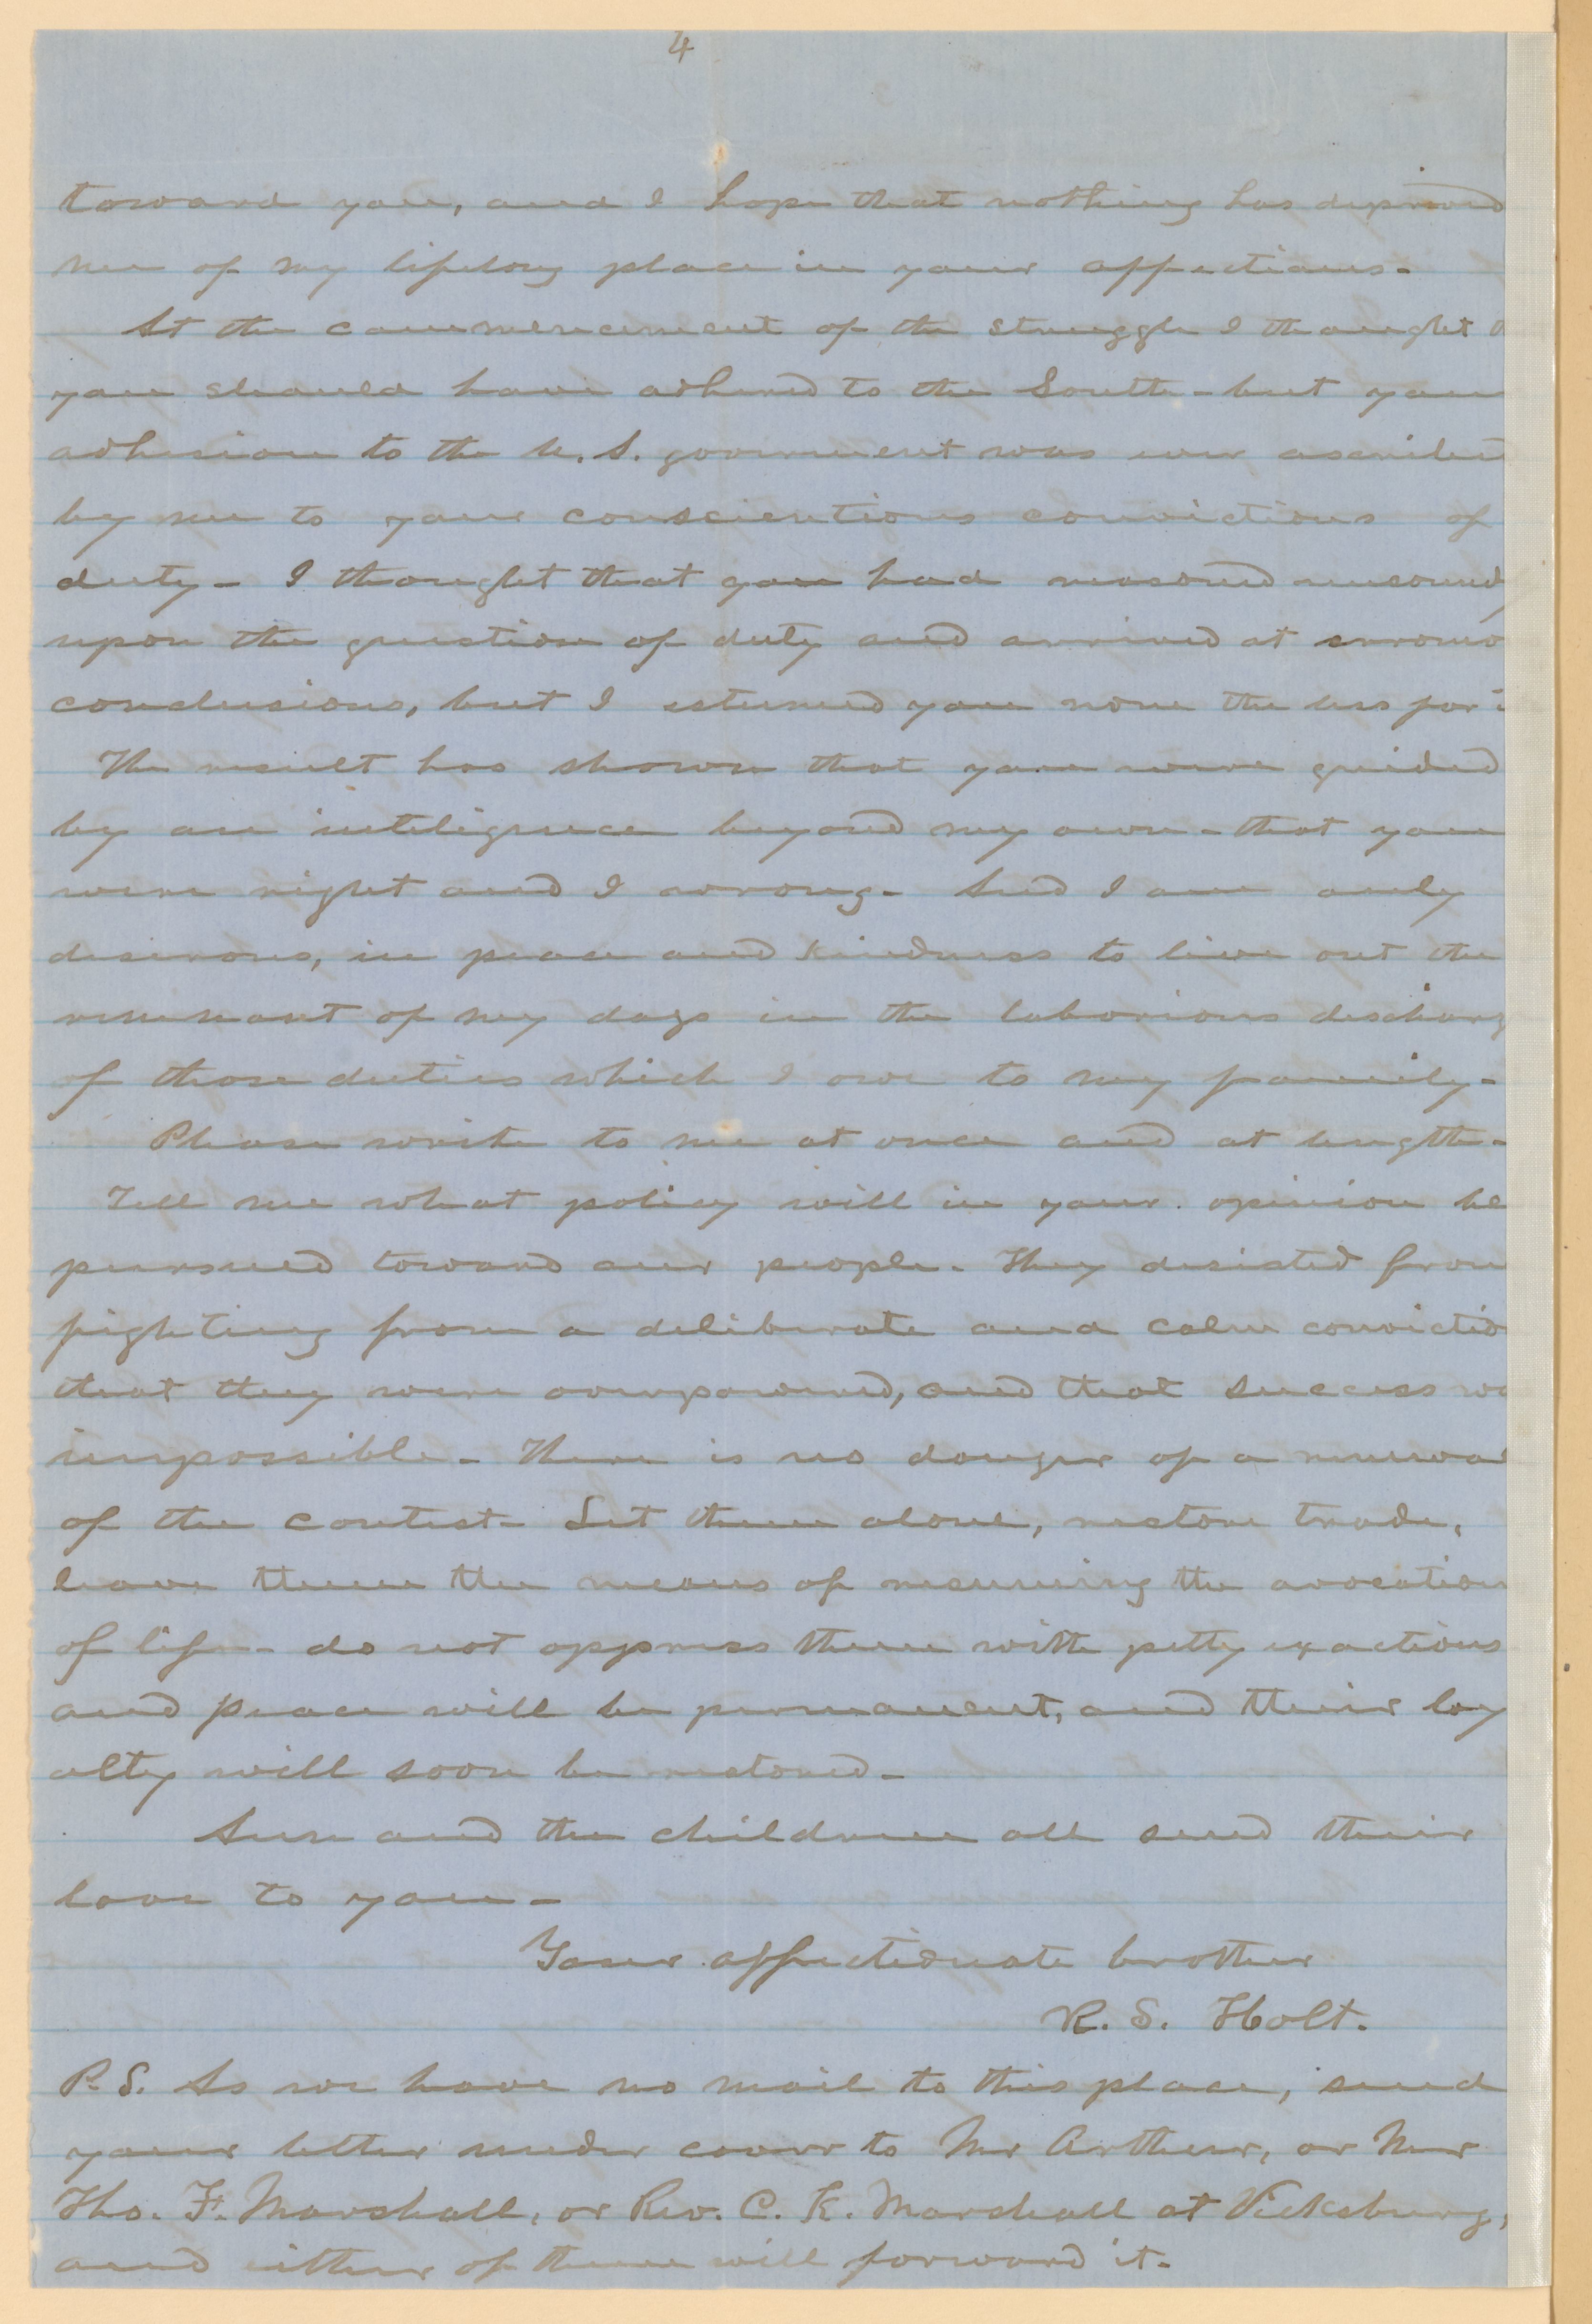 4
toward you, and I hope that nothing has deprived
me of my lifelong place in your affections-
At the commencement of the struggle I thought
you should have adhered to the South - but your
adhesion to the U.S. government was ever ascribed
by me to your conscientious convictions of
duty - I thought that you had reasoned unsoundly
upon the question of duty and arrived at erroneo
conclusions, but I esteemed you none the less for i
The result has shown that you were guided
by an inteligence beyond my own - that you
were right and I wrong - And I am only
desirous, in peace and kindness to live out the
remnant of my days in the laborious discharg
of those duties which I owe to my family -
Please write to me at once and at length -
Tell me what policy will in your opinion be
pursued toward our people. They desisted from
fighting from a deliberate and calm convictio
that they were overpowered, and that success wa
impossible - There is no danger of a renewal
of the contest - Let them alone, restore trade,
leave them the means of resuming the avocation
of life - do not oppress them with petty exactions
and peace will be permanent, and their loy
alty will soon be restored -
Ann and the children all send their
love to you -
Your affectionate brother
R. S. Holt.
P.S. As we have no mail to this place, send
your letter under cover to Mr Arthur, or Mr
Tho. F. Marshall, or Rev. C. K. Marshall at Vicksburg,
and either of them will forward it -